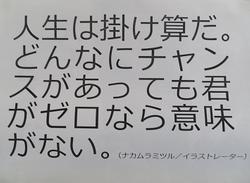 人生は掛け算だ。
どんなにチャン
スがあっても君
がゼロなら意味
がない。(ナカムラミツル/イラストレーター)